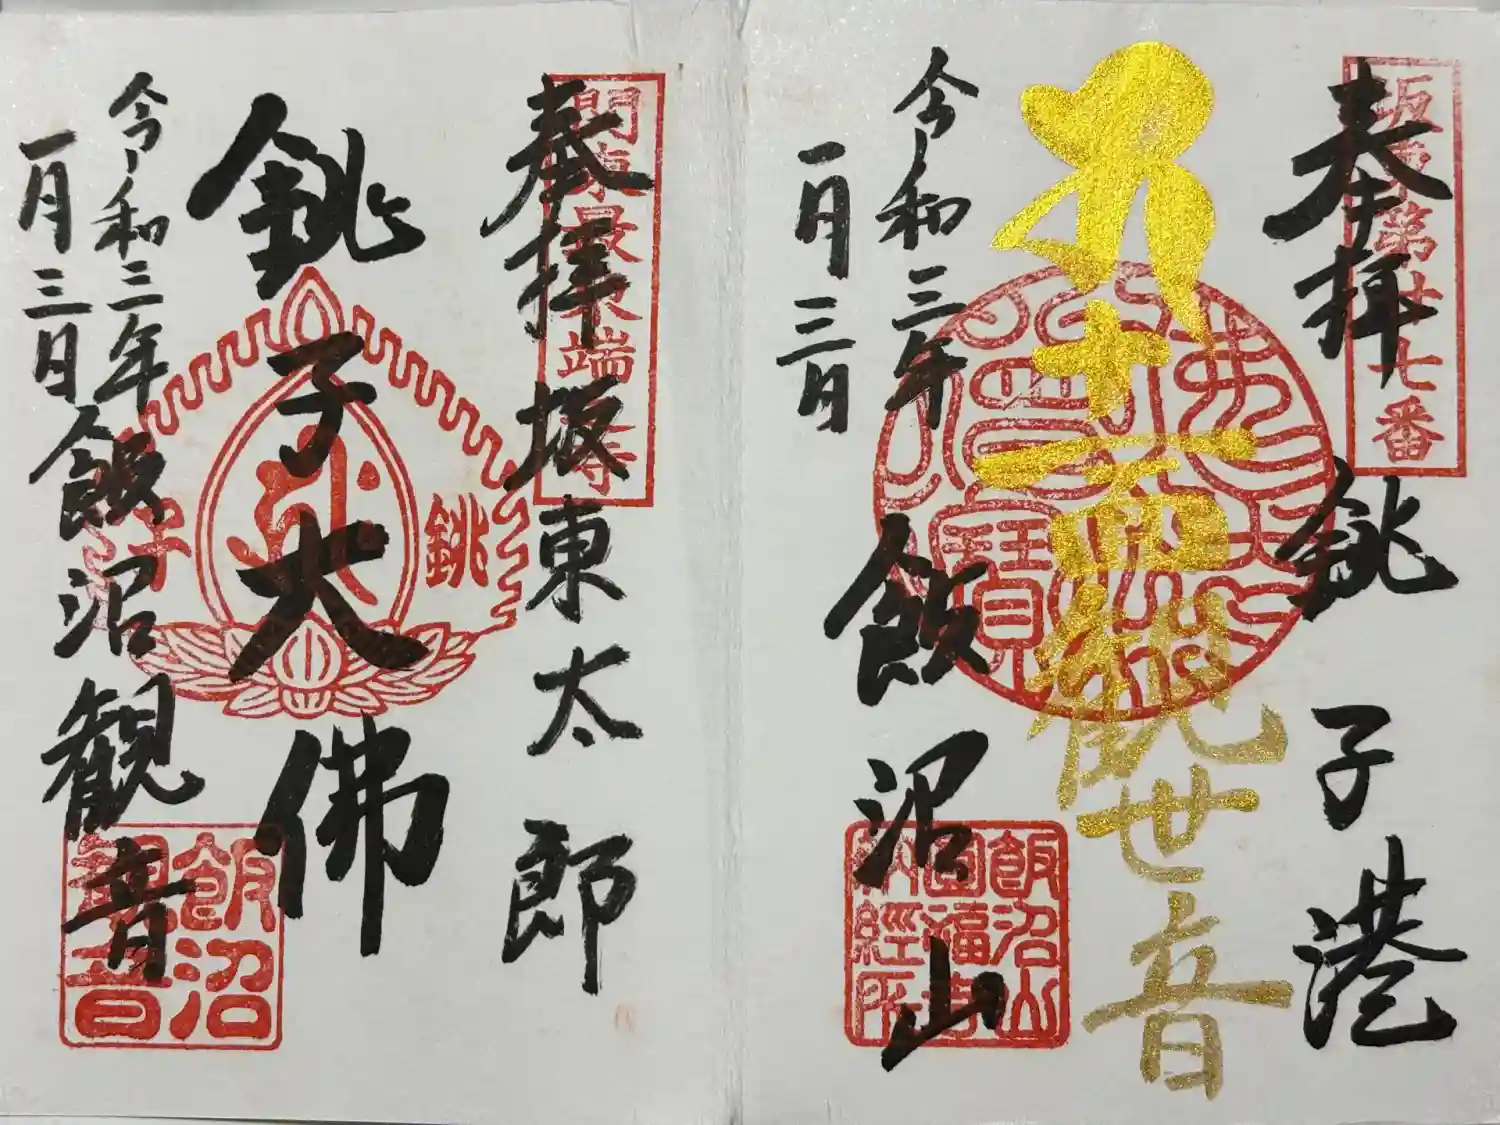 坂東第廿七番
奉拝
銚子港
十一面観世音
令和三年
一月三日
飯沼山
飯沼山
圓福寺
納経所
関東最東端寺
奉拝
坂東太郎
銚子大佛
銚子
令和三年
一月三日
飯沼観音
飯沼
観音